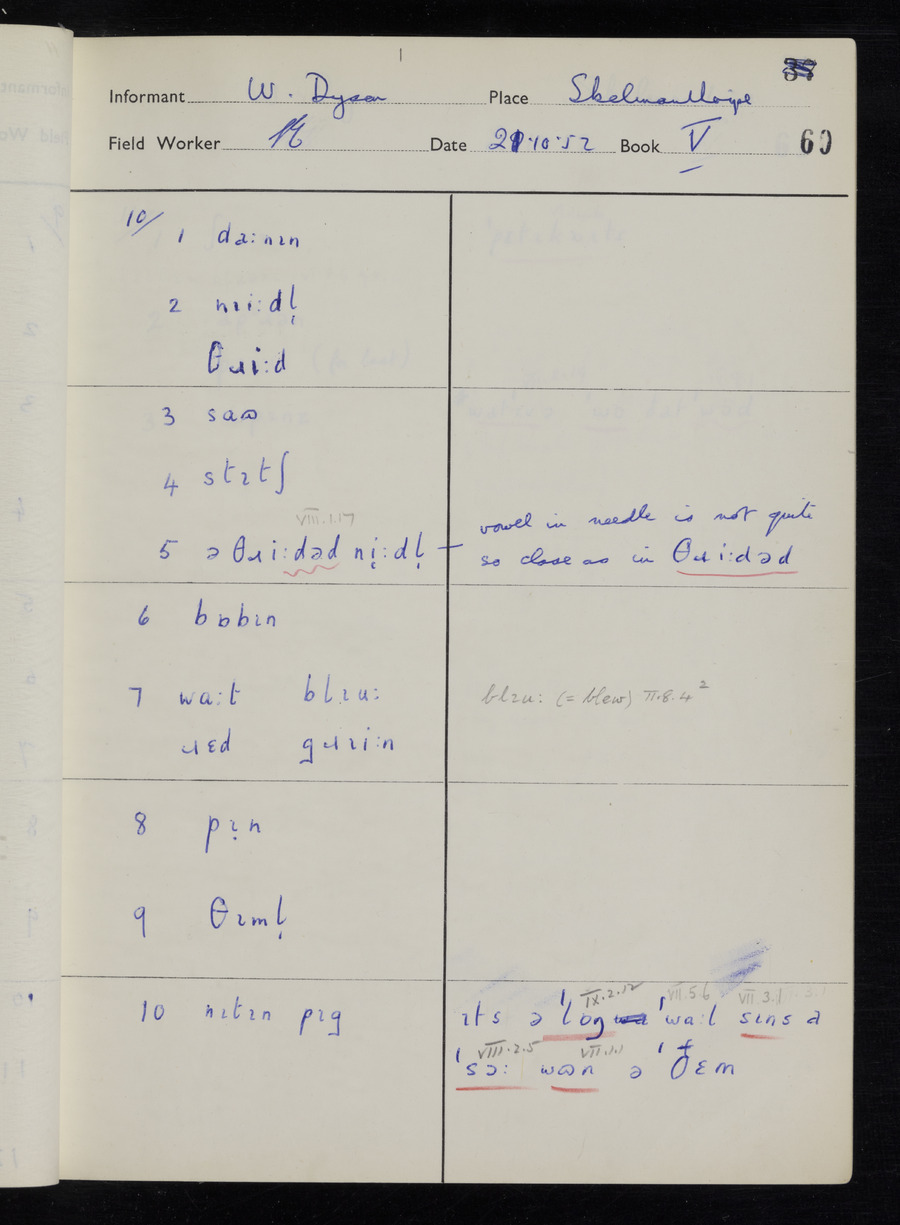 Informant W. Dyson Place Skelmanthorpe
Field Worker Date 21.10.52 Book V 60
10/ 1 daːnɪn
2 nɪiːdl̩
θɹiːd
3 saɷ
4 stɪtʃ
VIII.1.17
5 ə θɹiːdəd ni̞ːdl̩ — vowel in needle is not quite
so close as in θɹiːdəd
6 bɒbɪn
7 waːt blɪuː blɪuː (= blew) VI.8.4²
ɹɛd gɹɪiːn
8 pɪ̞n
9 θɪml̩
10 nɪtɪn pɪg
IX.2.12 VII.5.6 VII.3.1
ɪts ə ˈlɒŋ ˈwaːl sɪns ə
VIII.2.5 VII.1.1
ˈsɔː wɷn ə ˈðɛm